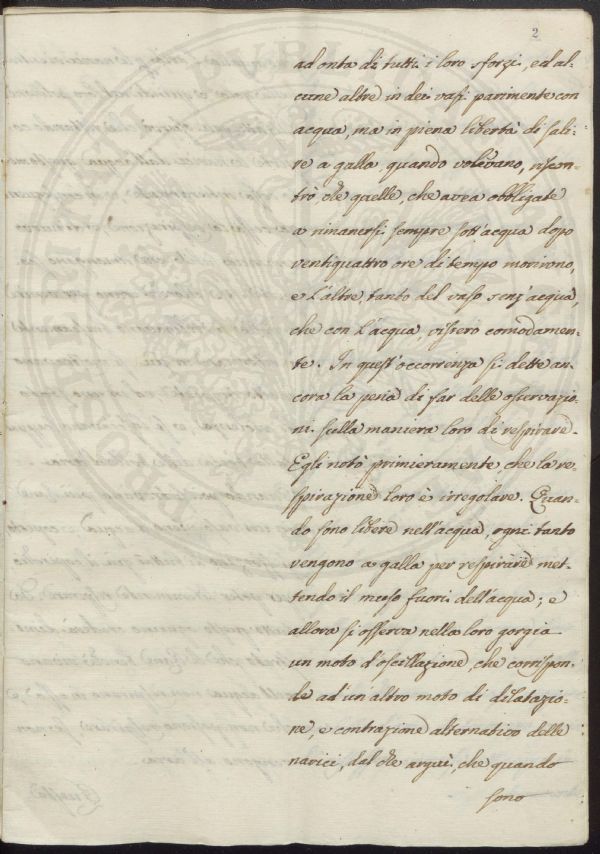 2
ad onta di tutti i loro sforzi, ed al-
cune altre in dei vasi parimente con
acqua, ma in piena libertà di sali-
re a galla quando volevano, riscon-
trò, che quelle, che avea obbligate
a rimanersi sempre sott'acqua dopo
ventiquattro ore di tempo morirono,
e l'altre, tanto del vaso senz'acqua,
che con l'acqua, vissero comodamen-
te. In quest'occorrenza si dette an-
cora la pena di far delle osservazio-
ni sulla maniera loro di respirare.
Egli notò primieramente, che la re-
spirazione loro è irregolare. Quan-
do sono libere nell'acqua, ogni tanto
vengono a galla per respirare met-
tendo il muso fuori dell'acqua; e
allora si osserva nella loro gorgia
un moto d'oscillazione, che corrispon-
de ad un'altro moto di dilatazio-
ne, e contrazione alternativo delle
narici, dal che arguì, che quando
sono